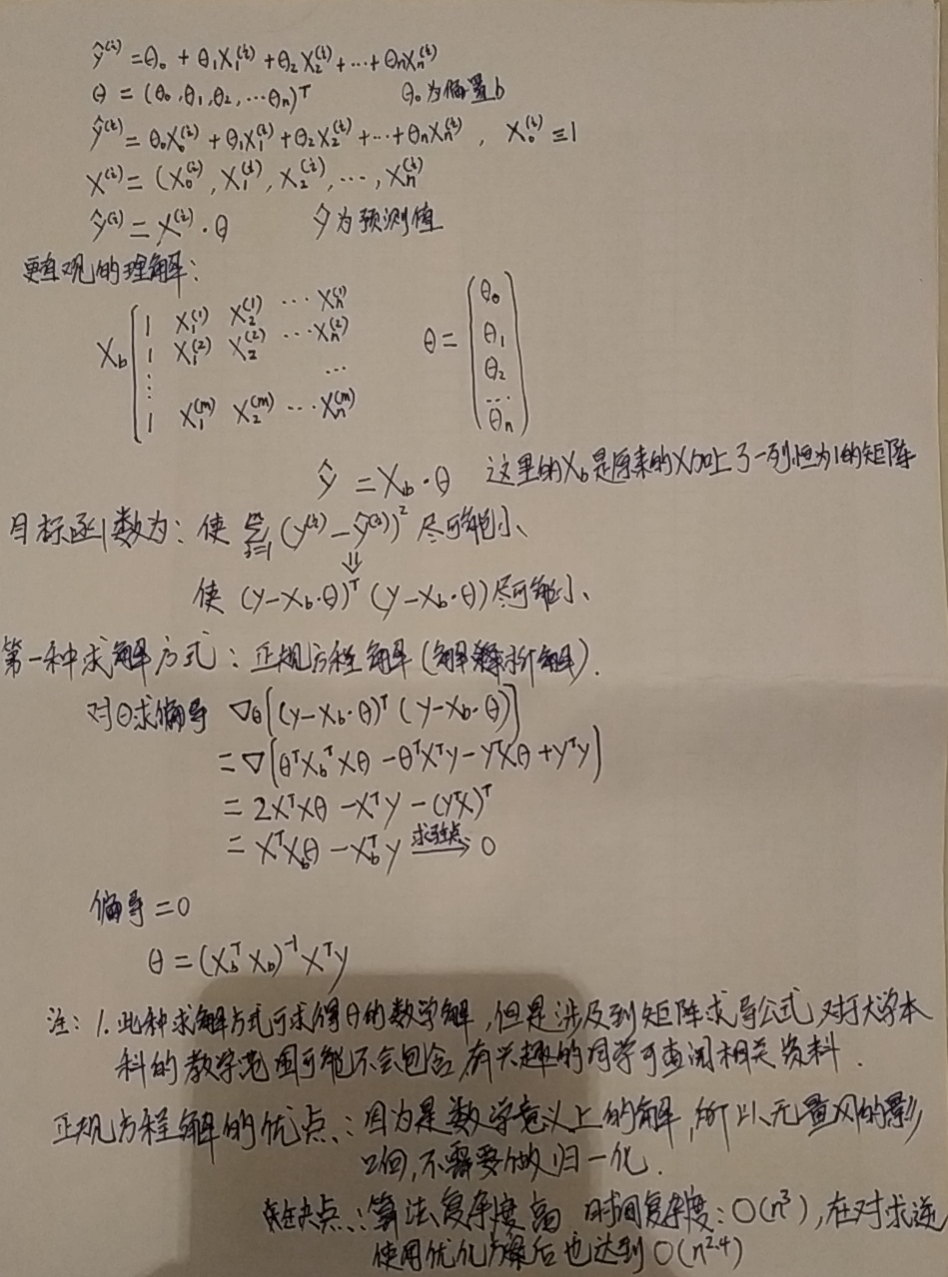 ŷ⁽ⁱ⁾ = θ₀ + θ₁X₁⁽ⁱ⁾ + θ₂X₂⁽ⁱ⁾ + ⋯ + θₙXₙ⁽ⁱ⁾
θ = (θ₀, θ₁, θ₂, ⋯θₙ)ᵀ θ₀为偏置b
ŷ⁽ⁱ⁾ = θ₀X₀⁽ⁱ⁾ + θ₁X₁⁽ⁱ⁾ + θ₂X₂⁽ⁱ⁾ + ⋯ + θₙXₙ⁽ⁱ⁾, X₀⁽ⁱ⁾ ≡ 1
X⁽ⁱ⁾ = (X₀⁽ⁱ⁾, X₁⁽ⁱ⁾, X₂⁽ⁱ⁾, ⋯, Xₙ⁽ⁱ⁾)
ŷ⁽ⁱ⁾ = X⁽ⁱ⁾·θ ŷ为预测值
更直观的理解:
1 X₁⁽¹⁾ X₂⁽¹⁾ ⋯ Xₙ⁽¹⁾ θ₀
X_b 1 X₁⁽²⁾ X₂⁽²⁾ ⋯ Xₙ⁽²⁾ θ = θ₁
⋮ ⋯ θ₂
1 X₁⁽ᵐ⁾ X₂⁽ᵐ⁾ ⋯ Xₙ⁽ᵐ⁾ ⋯ θₙ
ŷ = X_b·θ 这里的X_b是原来的X加上了一列恒为1的矩阵
目标函数为: 使 ∑ᵢ₌₁ᵐ (y⁽ⁱ⁾ − ŷ⁽ⁱ⁾)² 尽可能小
⇓
使 (y−X_b·θ)ᵀ (y−X_b·θ) 尽可能小
第一种求解方式: 正规方程解(解析解).
对θ求偏导 ∇θ[(y−X_b·θ)ᵀ (y−X_b·θ)]
= ∇[θᵀX_bᵀXθ − θᵀXᵀy − yᵀXθ + yᵀy]
= 2XᵀXθ − Xᵀy − (yᵀX)ᵀ
= XᵀX_bθ − X_bᵀy 求驻点→ 0
偏导 = 0
θ = (X_bᵀX_b)⁻¹Xᵀy
注: 1. 此种求解方式可求得θ的数学解, 但是涉及到矩阵求导公式, 对于大学本
科的教学范围可能不会包含, 有兴趣的同学可查阅相关资料.
正规方程解的优点: 因为是数学意义上的解, 所以无量纲的影
响, 不需要做归一化.
缺点: 算法复杂度高, 时间复杂度: O(n³), 在对求逆
使用优化方案后也达到O(n^2.4)